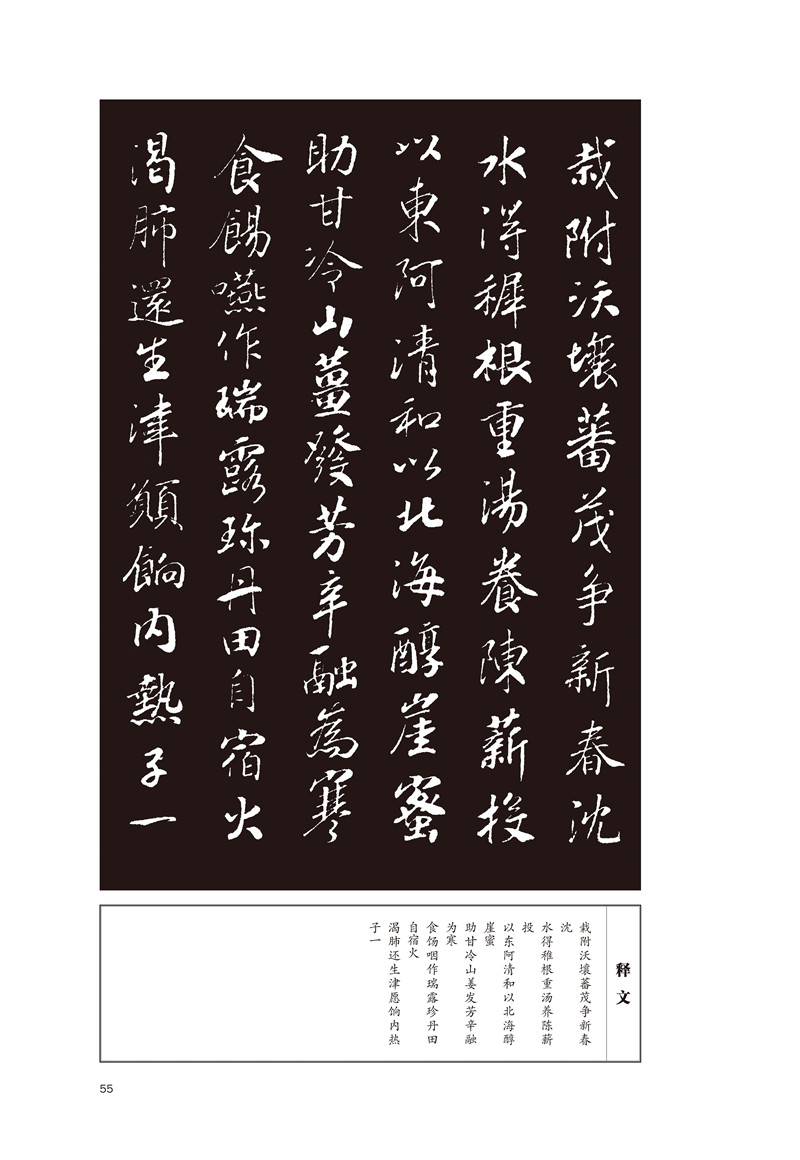 栽附沃壤蕃茂争新春沈
水得穉根重湯養陳薪投
以東阿清和以北海醇崖蜜
助甘冷山薑發芳辛融為寒
食餳嚥作瑞露珎丹田自宿火
渴肺還生津願餉内熱子一
释文
栽附沃壤蕃茂争新春
沈
水得稚根重汤养陈薪
投
以东阿清和以北海醇
崖蜜
助甘冷山姜发芳辛融
为寒
食饧咽作瑞露珍丹田
自宿火
渴肺还生津愿饷内热
子一
55